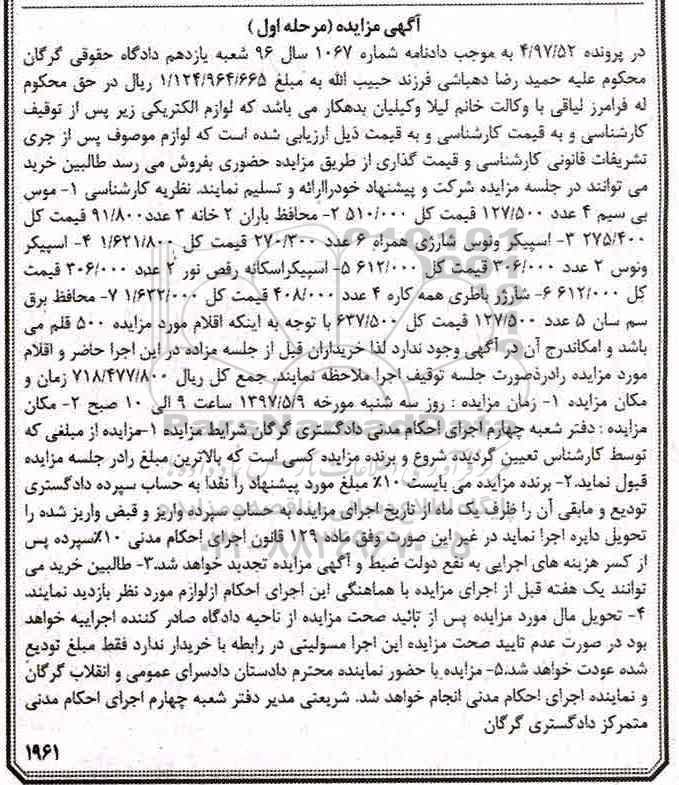 آگهی مزایده (مرحله اول)
در پرونده ۴/۹۷/۵۲ به موجب دادنامه شماره ۱۰۶۷ سال ۹۶ شعبه یازدهم دادگاه حقوقی گرگان
محکوم علیه حمید رضا دهباشی فرزند حبیب الله به مبلغ ۱/۱۲۴/۹۶۴/۶۶۵ ریال در حق محکوم
له فرامرز لیاقی با وکالت خانم لیلا وکیلیان بدهکار می باشد که لوازم الکتریکی زیر پس از توقیف
کارشناسی و به قیمت کارشناسی و به قیمت ذیل ارزیابی شده است که لوازم موصوف پس از جری
تشریفات قانونی کارشناسی و قیمت گذاری از طریق مزایده حضوری بفروش می رسد طالبین خرید
می توانند در جلسه مزایده شرکت و پیشنهاد خودراارائه و تسلیم نمایند. نظریه کارشناسی ۱- موس
بی سیم ۴ عدد ۱۲۷/۵۰۰ قیمت کل ۵۱۰/۰۰۰ ۲- محافظ باران ۲ خانه ۳ عدد۹۱/۸۰۰ قیمت کل
۲۷۵/۴۰۰ ۳- اسپیکر ونوس شارژی همراه ۶ عدد ۲۷۰/۳۰۰ قیمت کل ۱/۶۲۱/۸۰۰ ۴- اسپیکر
ونوس ۲ عدد ۳۰۶/۰۰۰ قیمت کل ۶۱۲/۰۰۰ ۵- اسپیکراسکانه رقص نور ۲ عدد ۳۰۶/۰۰۰ قیمت
کل ۶۱۲/۰۰۰ ۶- شارژر باطری همه کاره ۴ عدد ۴۰۸/۰۰۰ قیمت کل ۱/۶۳۲/۰۰۰ ۷- محافظ برق
سم سان ۵ عدد ۱۲۷/۵۰۰ قیمت کل ۶۳۷/۵۰۰ با توجه به اینکه اقلام مورد مزایده ۵۰۰ قلم می
باشد و امکاندرج آن در آگهی وجود ندارد لذا خریداران قبل از جلسه مزاده در این اجرا حاضر و اقلام
مورد مزایده رادرذصورت جلسه توقیف اجرا ملاحظه نمایند. جمع کل ریال ۷۱۸/۴۷۷/۸۰۰ زمان و
مکان مزایده ۱- زمان مزایده : روز سه شنبه مورخه ۱۳۹۷/۵/۹ ساعت ۹ الی ۱۰ صبح ۲- مکان
مزایده : دفتر شعبه چهارم اجرای احکام مدنی دادگستری گرگان شرایط مزایده ۱-مزایده از مبلغی که
توسط کارشناس تعیین گردیده شروع و برنده مزایده کسی است که بالاترین مبلغ رادر جلسه مزایده
قبول نماید.۲- برنده مزایده می بایست ۱۰٪ مبلغ مورد پیشنهاد را نقدا به حساب سپرده دادگستری
تودیع و مابقی آن را ظرف یک ماه از تاریخ اجرای مزایده به حساب سپرده واریز و قبض واریز شده را
تحویل دایره اجرا نماید در غیر این صورت وفق ماده ۱۲۹ قانون اجرای احکام مدنی ۱۰٪سپرده پس
از کسر هزینه های اجرایی به نفع دولت ضبط و آگهی مزایده تجدید خواهد شد.۳- طالبین خرید می
توانند یک هفته قبل از اجرای مزایده با هماهنگی این اجرای احکام ازلوازم مورد نظر بازدید نمایند.
۴- تحویل مال مورد مزایده پس از تائید صحت مزایده از ناحیه دادگاه صادر کننده اجراییه خواهد
بود در صورت عدم تایید صحت مزایده این اجرا مسولیتی در رابطه با خریدار ندارد فقط مبلغ تودیع
شده عودت خواهد شد.۵- مزایده با حضور نماینده محترم دادستان دادسرای عمومی و انقلاب گرگان
و نماینده اجرای احکام مدنی انجام خواهد شد. شریعتی مدیر دفتر شعبه چهارم اجرای احکام مدنی
متمرکز دادگستری گرگان
۱۹۶۱